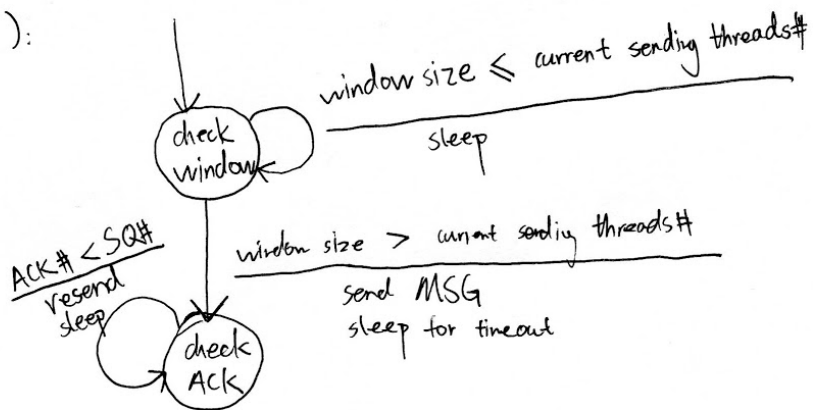 ):
window size ≤ current sending threads#
sleep
check
window
window size > current sending threads#
send MSG
sleep for timeout
ACK# < SQ#
resend
sleep
check
ACK